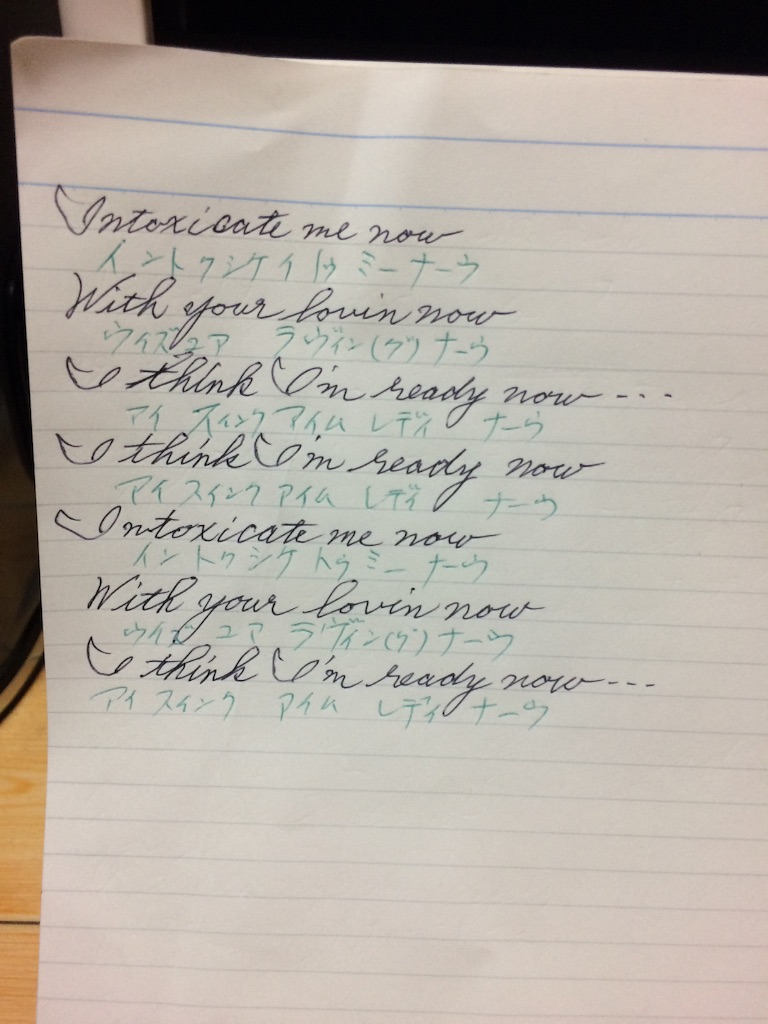 Intoxicate me now
イントクシケイトゥ ミー ナーウ
With your lovin now
ウィズ ユア ラヴィン(グ) ナーウ
I think I'm ready now ---
アイ スィンク アイム レディ ナーウ
I think I'm ready now
アイ スィンク アイム レディ ナーウ
Intoxicate me now
イントクシケトゥ ミー ナーウ
With your lovin now
ウィズ ユア ラヴィン(グ) ナーウ
I think I'm ready now ---
アイ スィンク アイム レディ ナーウ